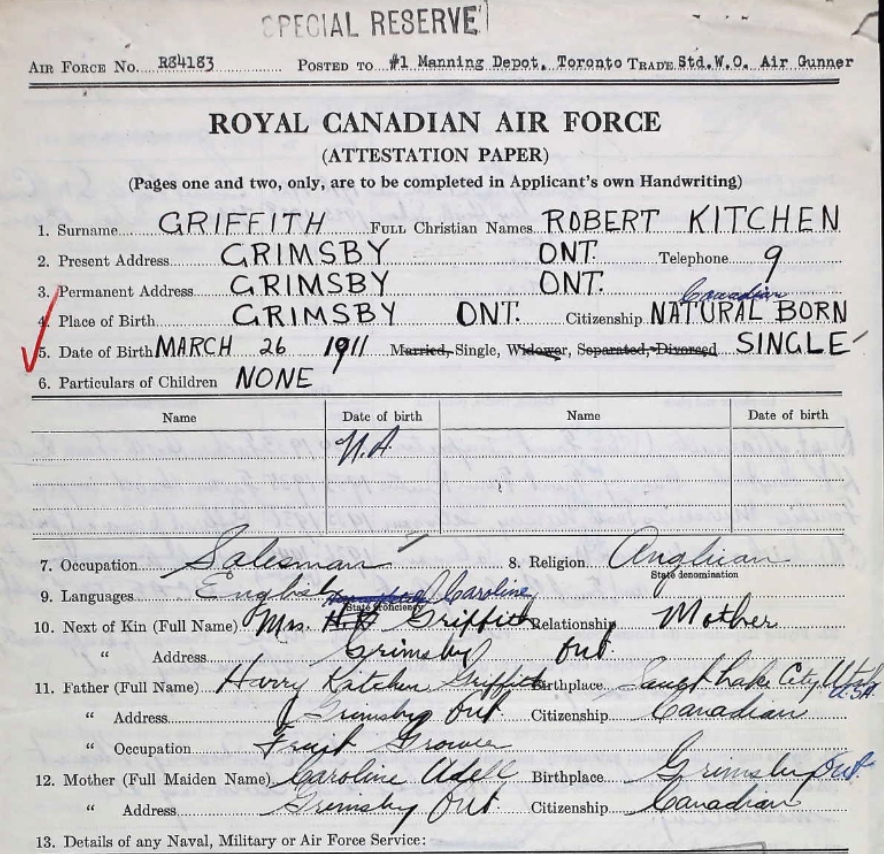 SPECIAL RESERVE
AIR FORCE No. R84183 POSTED TO #1 Manning Depot, Toronto TRADE Std.W.O. Air Gunner
ROYAL CANADIAN AIR FORCE
(ATTESTATION PAPER)
(Pages one and two, only, are to be completed in Applicant's own Handwriting)
1. Surname GRIFFITH FULL Christian Names ROBERT KITCHEN
2. Present Address GRIMSBY ONT. Telephone 9
3. Permanent Address GRIMSBY ONT.
Canadian
4. Place of Birth GRIMSBY ONT. Citizenship NATURAL BORN
5. Date of Birth MARCH 26 1911 Married, Single, Widower, Separated, Divorced SINGLE
6. Particulars of Children NONE
Name Date of birth Name Date of birth
N.A.
7. Occupation Salesman 8. Religion Anglican
State denomination
9. Languages English Caroline
State Proficiency
10. Next of Kin (Full Name) Mrs. H.K. Griffith Relationship Mother
" Address Grimsby Ont.
11. Father (Full Name) Harry Kitchen Griffith Birthplace Lake City Utah
USA
" Address Grimsby Ont Citizenship Canadian
" Occupation Fruit Grower
12. Mother (Full Maiden Name) Caroline Adell Birthplace Grimsby Ont.
" Address Grimsby Ont Citizenship Canadian
13. Details of any Naval, Military or Air Force Service: